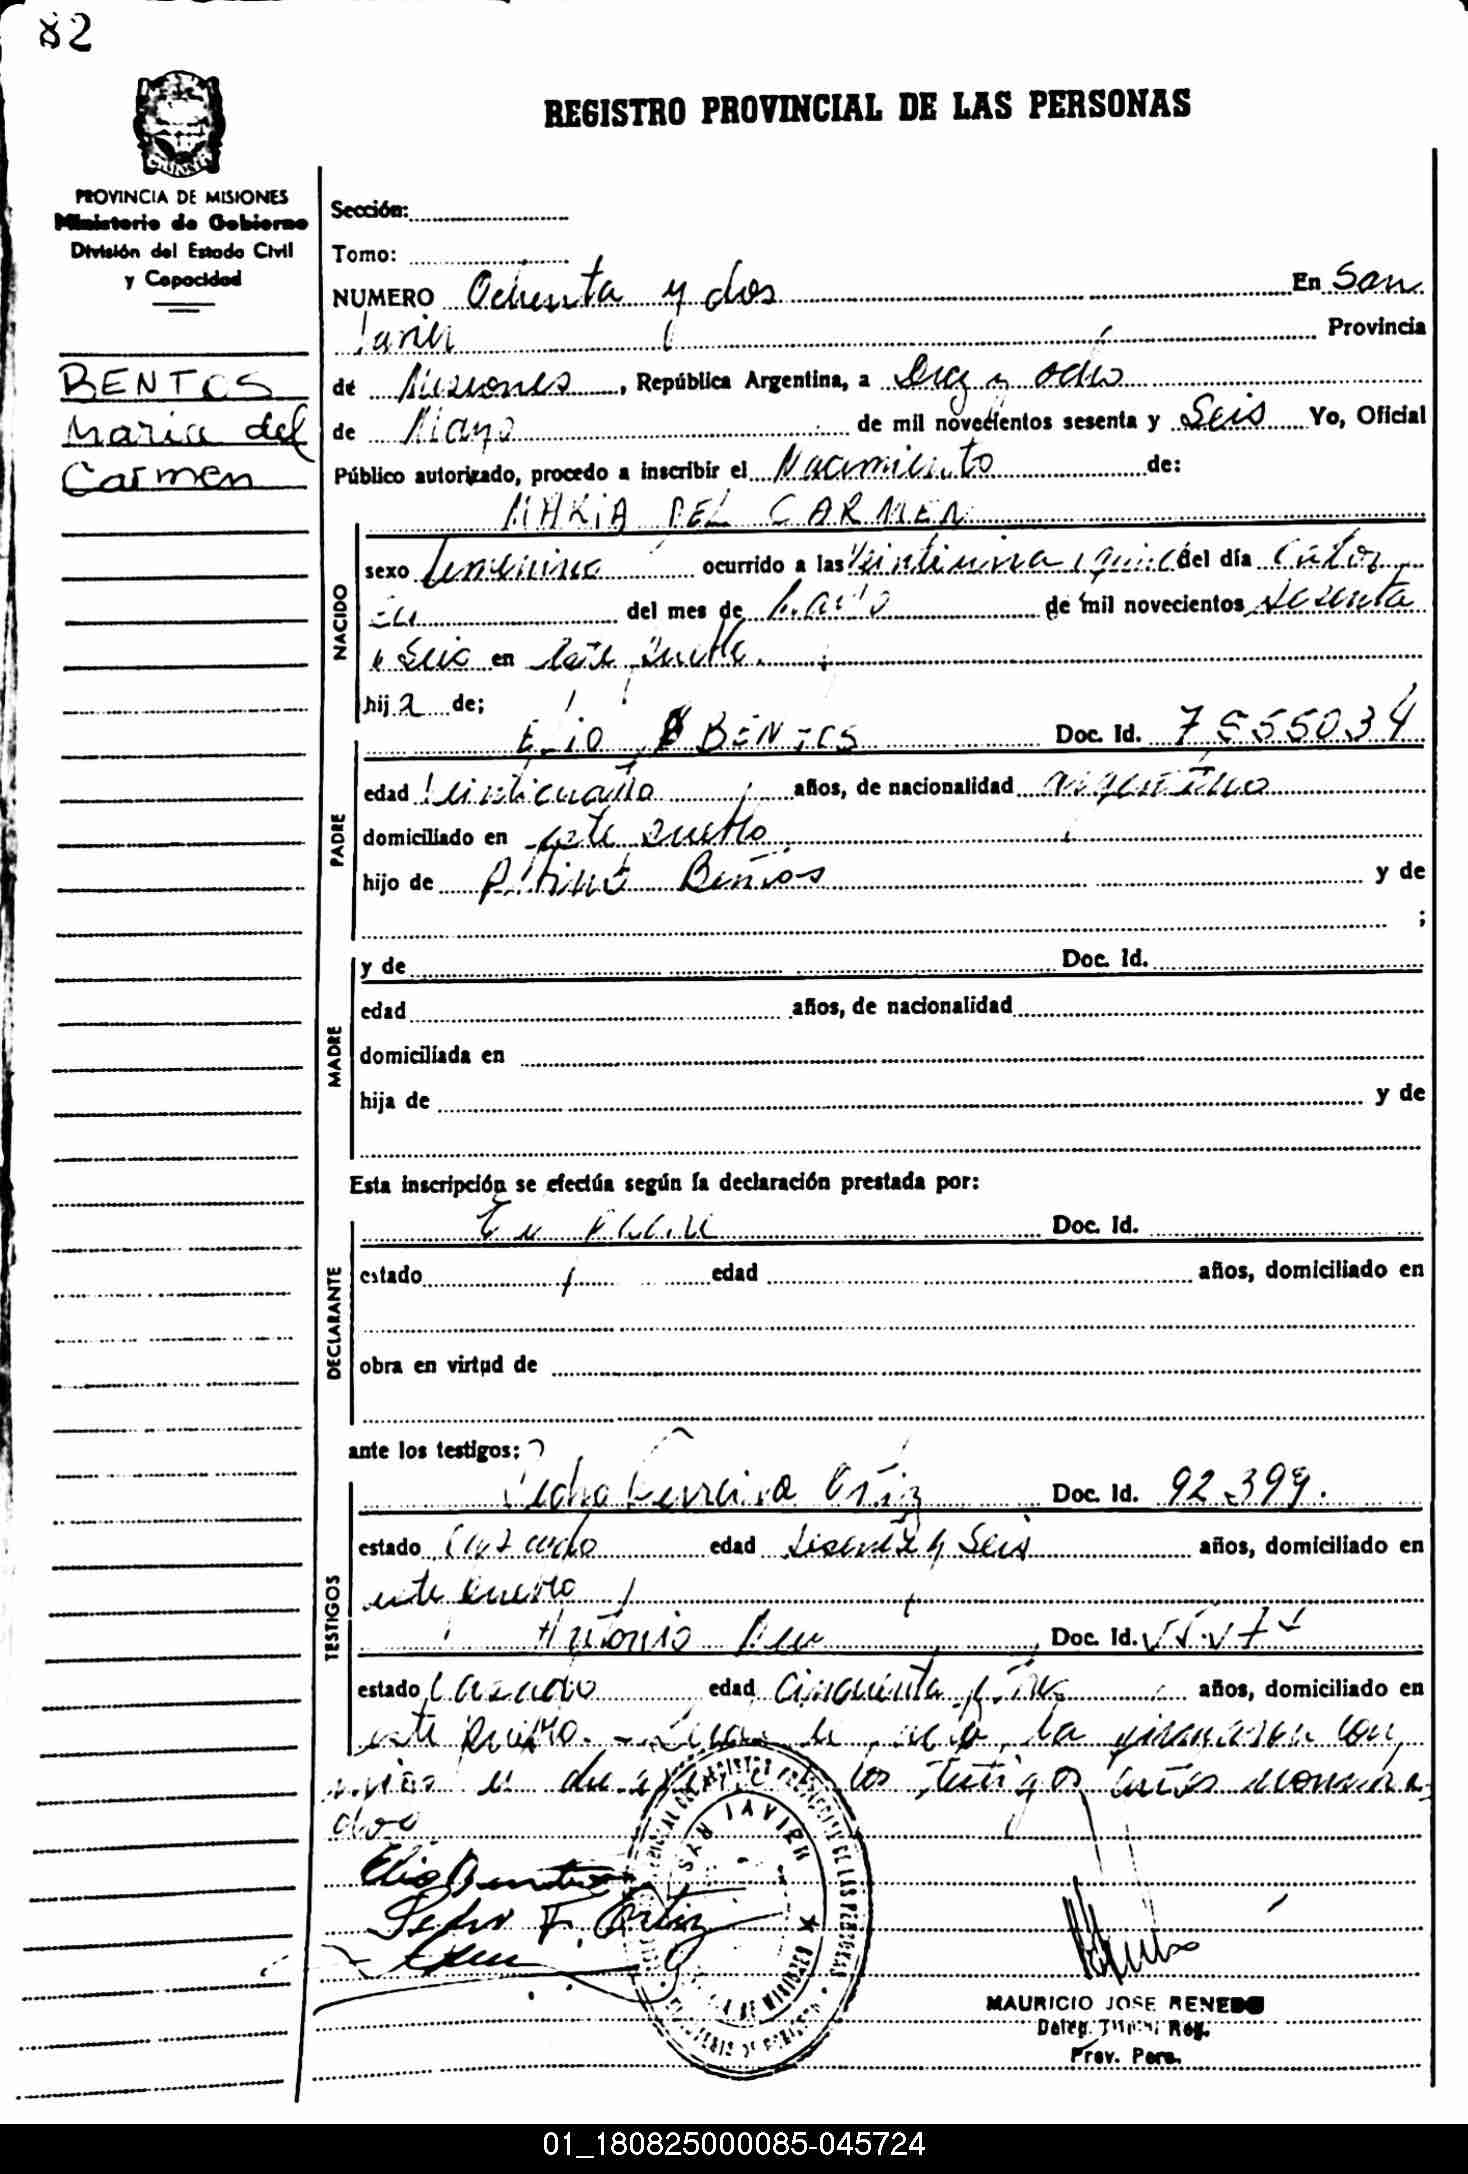 82
REGISTRO PROVINCIAL DE LAS PERSONAS
PROVINCIA DE MISIONES
Ministerio de Gobierno
División del Estado Civil
y Capacidad
BENTOS
Maria del
Carmen
Sección:
Tomo:
NUMERO Ochenta y dos En San
Javier Provincia
de Misiones, República Argentina, a Diez y ocho
de Mayo de mil novecientos sesenta y Seis Yo, Oficial
Público autorizado, procedo a inscribir el Nacimiento de:
MARIA DEL CARMEN
NACIDO
sexo femenino ocurrido a las del día Cator
ce del mes de Mayo de mil novecientos sesenta
y Seis en este pueblo
hija de;
PADRE
ELIO BENTOS Doc. Id. 7555034
edad Veinticuatro años, de nacionalidad argentino
domiciliado en este pueblo
hijo de Bentos y de
;
MADRE
y de Doc. Id.
edad años, de nacionalidad
domiciliada en
hija de y de
Esta inscripción se efectúa según la declaración prestada por:
DECLARANTE
Doc. Id.
estado edad años, domiciliado en
obra en virtud de
ante los testigos:
TESTIGOS
Pedro Ferreira Ortiz Doc. Id. 92.399.
estado Casado edad sesenta y Seis años, domiciliado en
este pueblo
Antonio Doc. Id.
estado Casado edad Cincuenta y tres años, domiciliado en
este pueblo. - la con
los testigos antes menciona
dos
Elio Bentos
Pedro F. Ortiz
SAN JAVIER
MAURICIO JOSE RENEDO
Deleg. Titular Reg.
Prov. Pers.
01_180825000085-045724